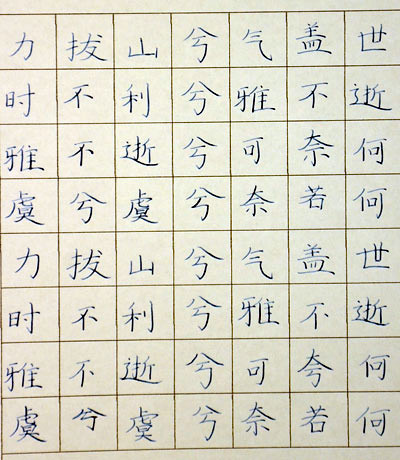 力拔山兮气盖世
时不利兮雅不逝
雅不逝兮可奈何
虞兮虞兮奈若何
力拔山兮气盖世
时不利兮雅不逝
雅不逝兮可夸何
虞兮虞兮奈若何